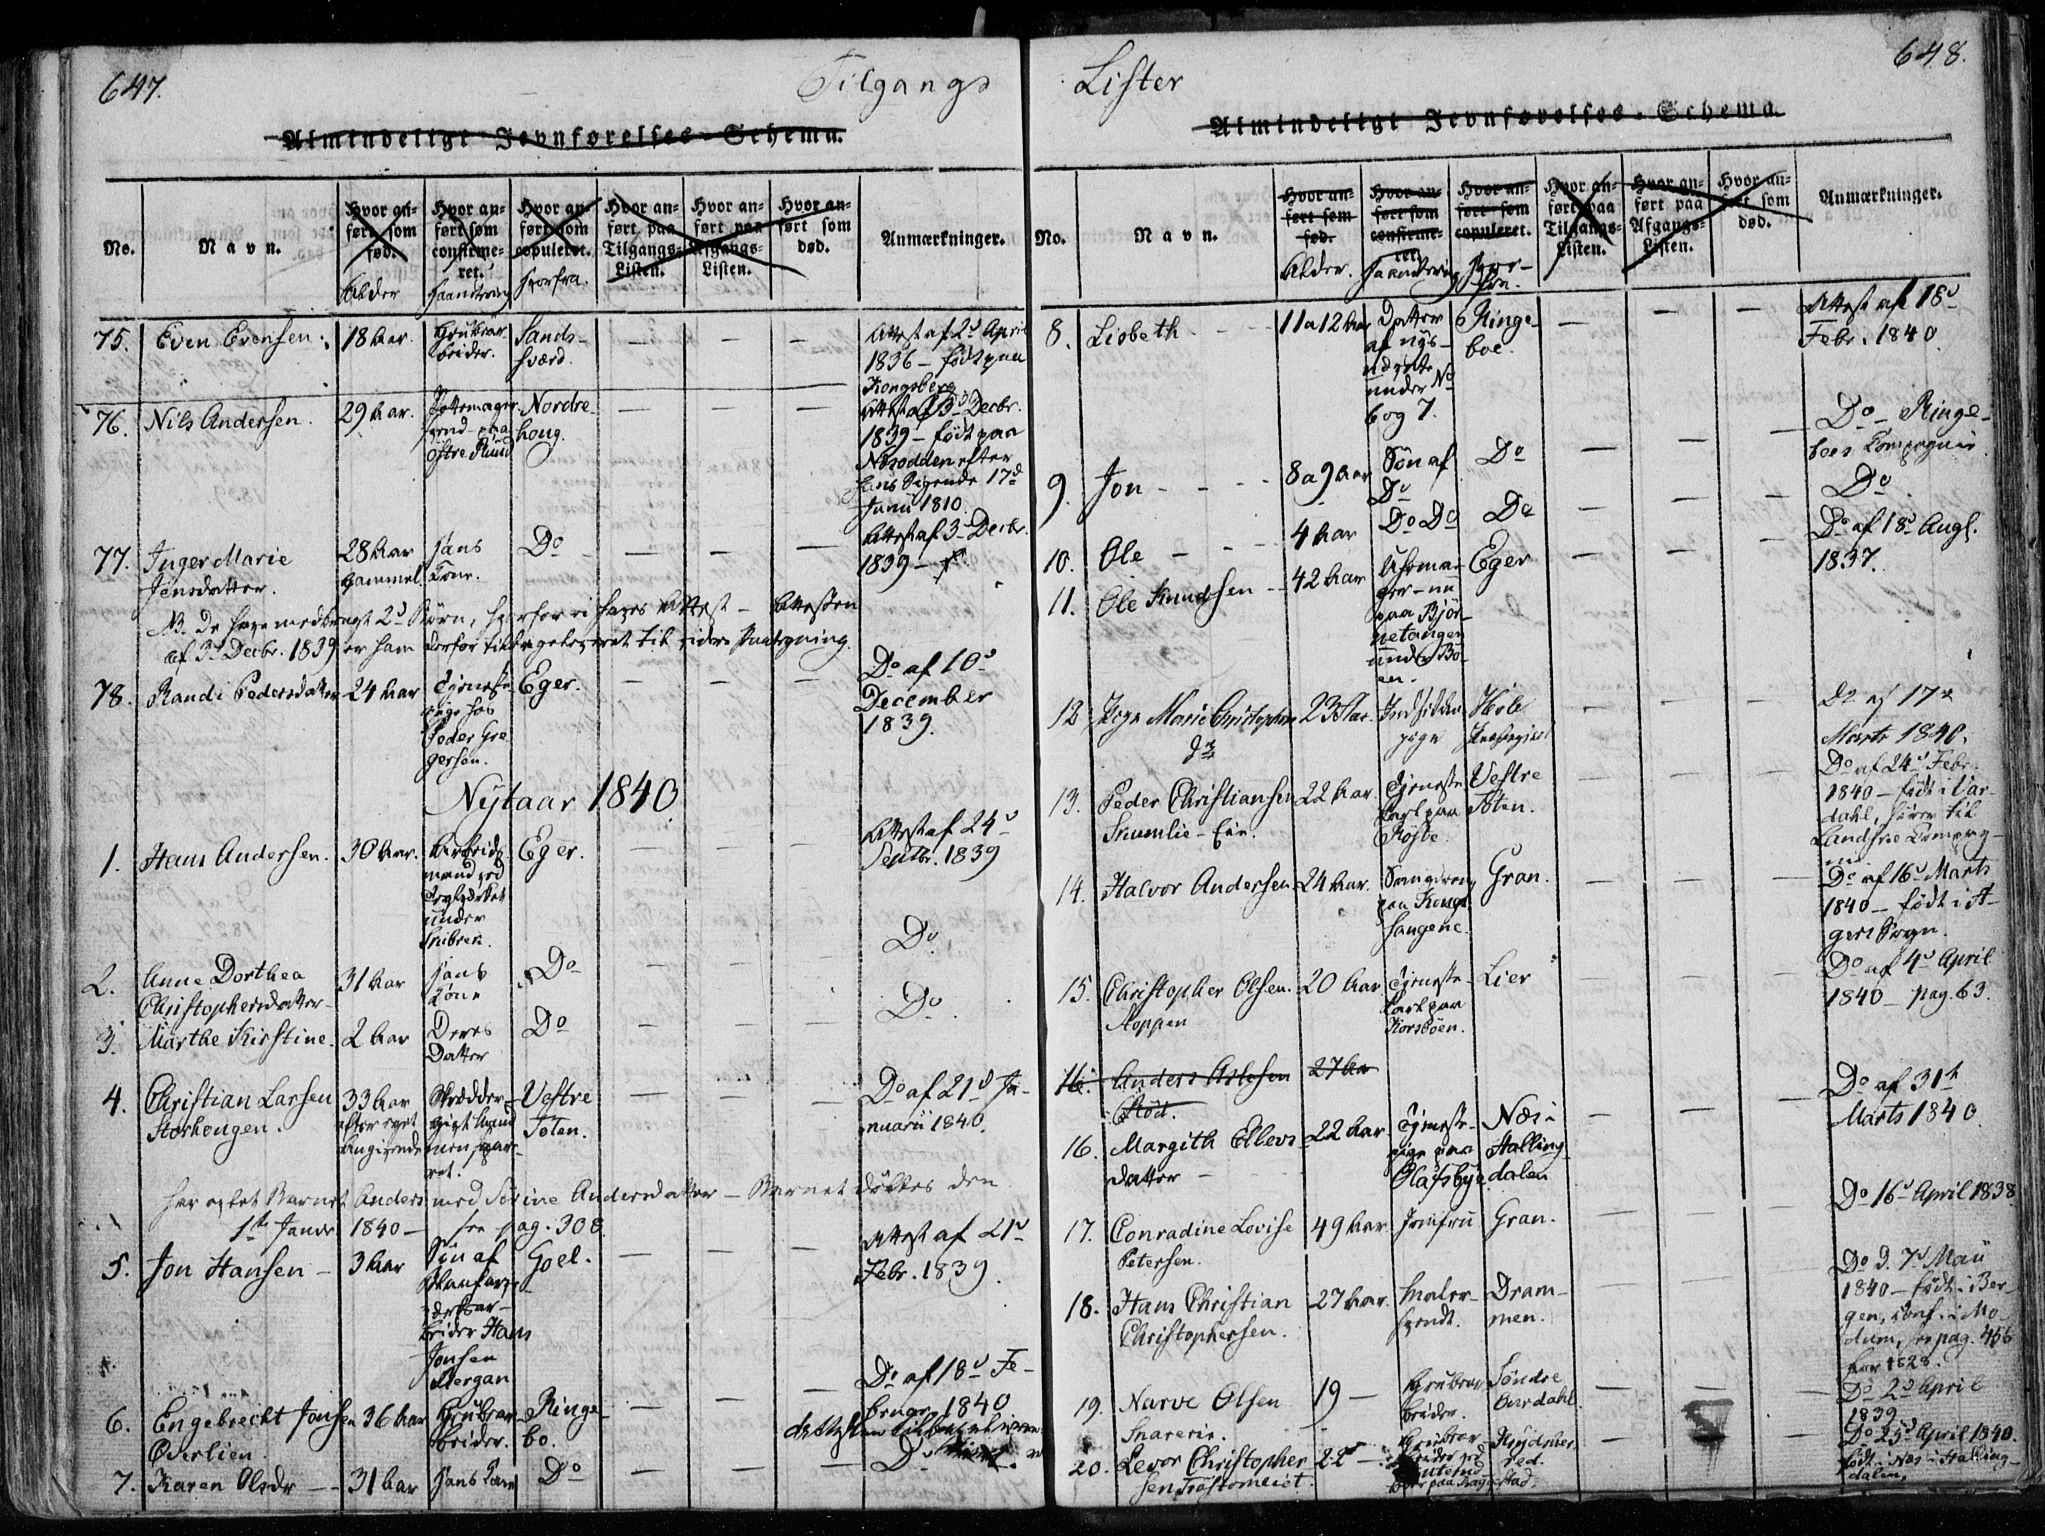 647.
Tilgangs
Almindeligt Jevnførelses-Schema.
No.
Navn.
Hvor anført som fød.
Alder
Hvor anført som confirmeret.
Haandtering
Hvor anført som copuleret.
Hvorfra.
Hvor anført paa Tilgangs-Listen.
Hvor anført paa Afgangs-Listen.
Hvor anført som død.
Anmærkninger.
75. Even Evensen. 18 Aar. Grubear-
beider.
Sands-
hværd.
Attest af 2d April
1836 – født paa
Kongsberg
76. Nils Andersen. 29 Aar. Pottemager
svend paa
Østre Ruud
Nordre-
houg.
Attest af 3d Decbr.
1839 – født paa
Næsodden efter
hans Sigende 17d
Junii 1810.
77. Inger Marie
Jensdatter.
28 Aar
gammel
Hans
Kone.
Do
Attest af 3d Decbr.
1839 –
NB. De have medbragt 2d Børn, hvorfor ei haves Attest – Attesten
af 3d Decbr. 1839 er ham derfor tilbageleveret til videre Paategning.
78. Randi Pedersdatter 24 Aar Tjeneste-
pige hos
Peder Gre-
gersen.
Eger.
Do af 10d
December
1839.
Nytaar 1840.
1. Hans Andersen. 30 Aar. Arbeids-
mand ved
Teglværket
under
Snibren.
Eger.
Attest af 24d
Septbr. 1839
2. Anne Dorthea
Christophersdatter
31 Aar
Hans
Kone
Do
Do
3. Marthe Kirstine. 2 Aar
Deres
Datter
Do
Do.
4. Christian Larsen
Storkengen.
33 Aar
efter eget
Angivende
Skrædder
Vestre
Toten.
Do af 21d Ja-
nuarii 1840.
Her avlet Barnet Anders med Sørine Andersdatter – Barnet døbtes den
1ste Janvr. 1840 – see pag. 308.
5. Jon Hansen – 3 Aar
Søn af
Blaafarve-
værksar-
beider Hans
Jonsen
Bergan
Goel.
Attest af 21d
Febr. 1839.
6. Engebrecht Jonsen
Overlien.
36 Aar
Grubear-
beider.
Ringe-
bo.
Do af 18d Fe-
bruar 1840
7. Karen Olsdr – 31 Aar Hans Kone Do
Do
648.
Lister
Almindeligt Jevnførelses-Schema.
No.
Navn.
Hvor anført som fød.
Alder.
Hvor anført som confirmeret.
Haandtering
Hvor anført som copuleret.
Hvor-
fra.
Hvor anført paa Tilgangs-Listen.
Hvor anført paa Afgangs-Listen.
Hvor anført som død.
Anmærkninger.
8. Lisbeth 11 a 12 Aar
Datter
af nys-
nævnte
under No
6 og 7.
Ringe-
boe.
Attest af 18d
Febr. 1840.
9. Jon 8 a 9 Aar
Søn af
Do
Do
Do – Ringe-
boes Compagnie
10. Ole 4 Aar Do Do Do
Do.
11. Ole Knudsen 42 Aar
Uhrma-
ger – nu
paa Bjør-
netangen
under Bø-
en.
Eger
Do af 18d Augt.
1837.
12 Pige Marie Christophers
dr
23 Aar.
pige
Hole
Præstegjeld
Do af 17de
Marts 1840.
13. Peder Christiansen
Snumlie-Eie.
22 Aar.
Tjeneste-
karl paa
Rosbe.
Vestre
Toten.
Do af 24d Febr.
1840 – født i Var-
dahl, hører til
Landske Compag-
nie
14. Halvor Andersen 24 Aar.
paa Konge
Haugene.
Gran.
Do af 16d Marts
1840 – født i A-
gers Sogn.
15. Christopher Olsen.
Moppen
20 Aar
Tjeneste-
karl paa
Korsbøen.
Lier
Do af 4d April
1840 – pag. 63.
16. Anders Aslesen
Røed.
27 Aar
16. Margith Ellevs
datter
22 Aar
Tjeneste-
pige paa
Olafsbye.
Næs i
Halling-
dalen
Do af 31te
Marts 1840.
17. Conradine Lovise
Petersen.
49 Aar. Jomfru Gran.
Do 16d April 1838
18. Hans Christian
Christophersen.
27 Aar.
Maler-
svendt.
Dram-
men.
Do d. 7d Maii
1840 – født i Ber-
gen, conf. i Mo-
dum, see pag. 456
for 1828.
19. Narve Olsen
Snarerie.
19 –
Grubear-
beider.
Søndre
Aurdahl.
Do 2d April
1839
20. Levor Christopher
sen Trøstomeiet.
22 –
Grubear-
beider ved
Do 25d April 1840.
født i Næs i Halling-
dalen.